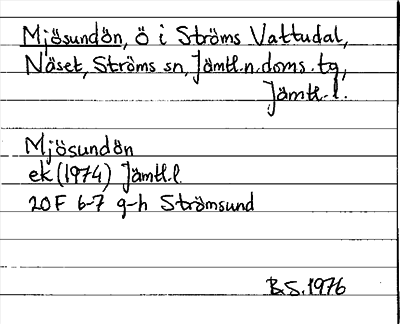 Mjösundön, ö i Ströms Vattudal,
Näset, Ströms sn, Jämtl.n.doms.tg,
Jämtl.l.
Mjösundön
ek (1974) Jämtl.l
20F 6-7 g-h Strömsund
B.S. 1976